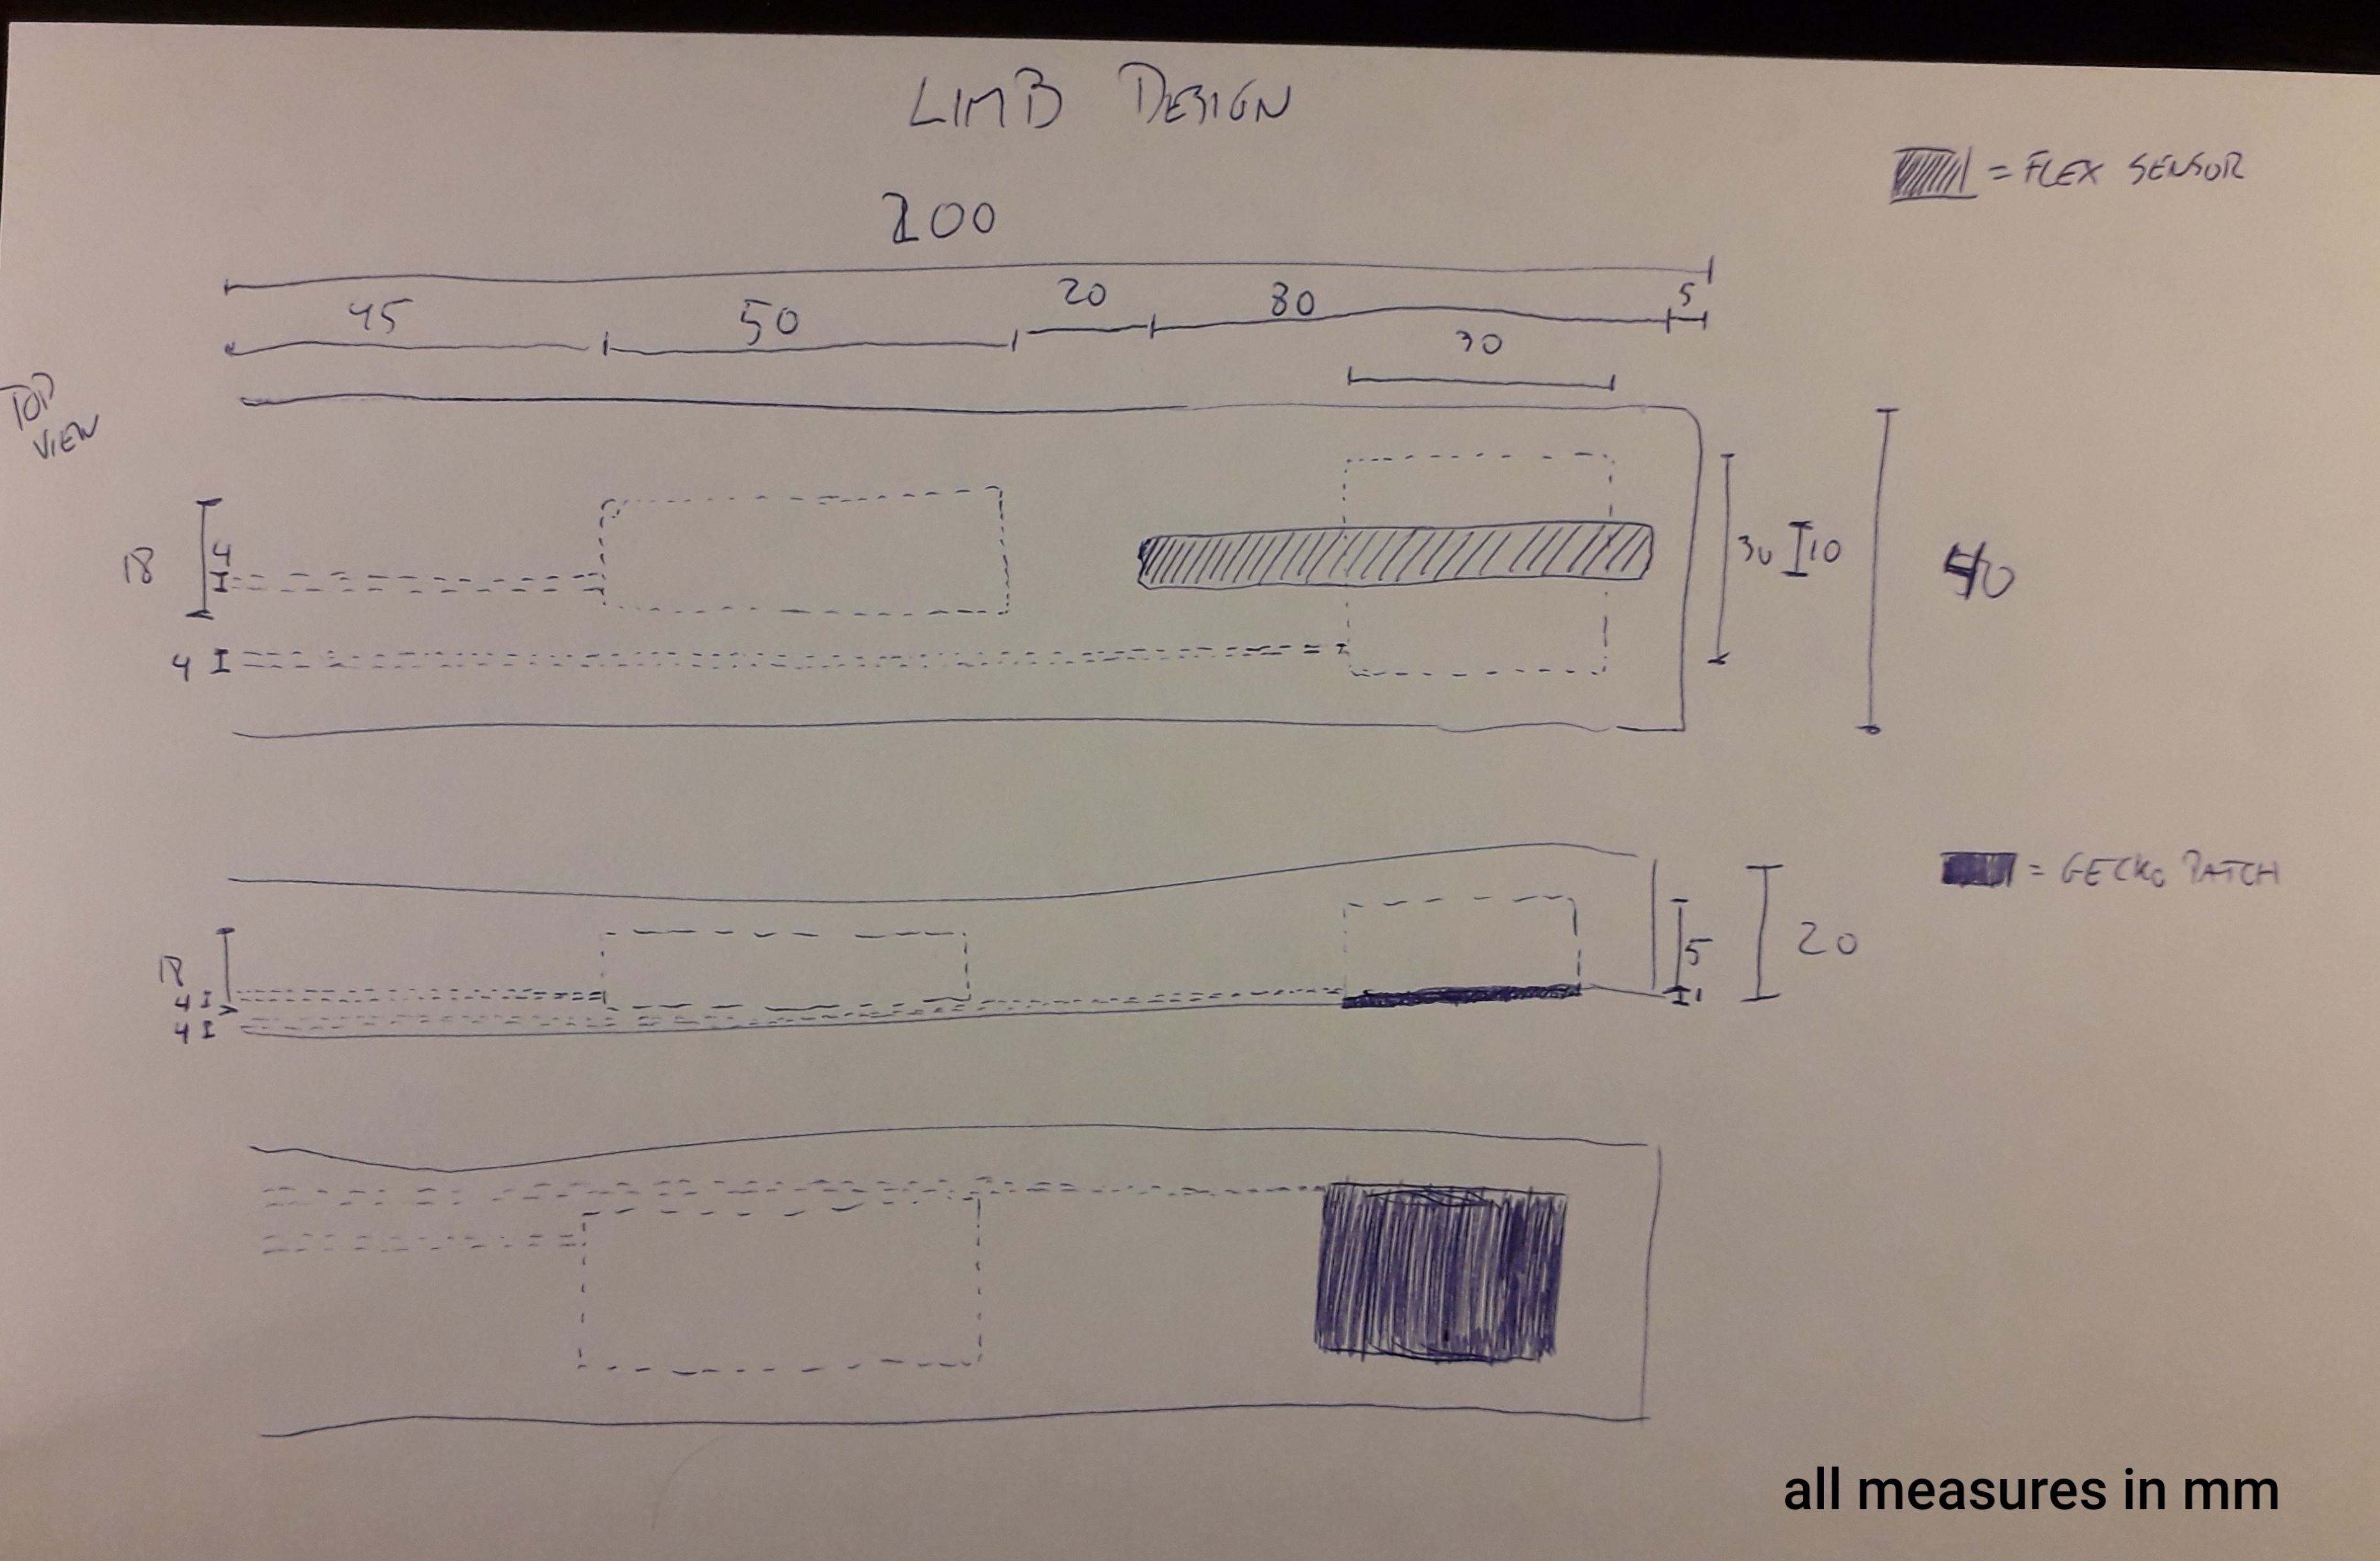 LIMB DESIGN
= FLEX SENSOR
200
45 50 20 80 5
30
TOP
VIEW
18 4
4
30 10 40
= GECKO PATCH
18
4
4
5 20
1
all measures in mm